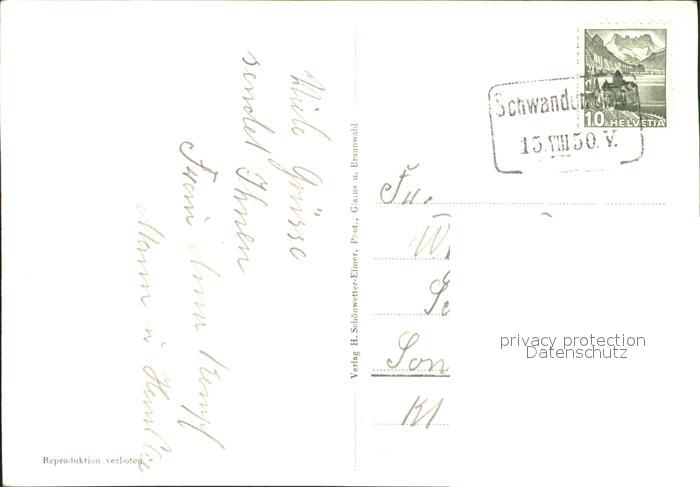 Viele Grüsse
sendet Ihnen
Frau Anna Kempf
Mann u
Reproduktion verboten
Verlag H. Schönwetter-Elmer, Phot., Glarus u. Braunwald
10 HELVETIA
Schwanden
15.VIII 50. V.
Fr.
W
Son
Kl
privacy protection
Datenschutz